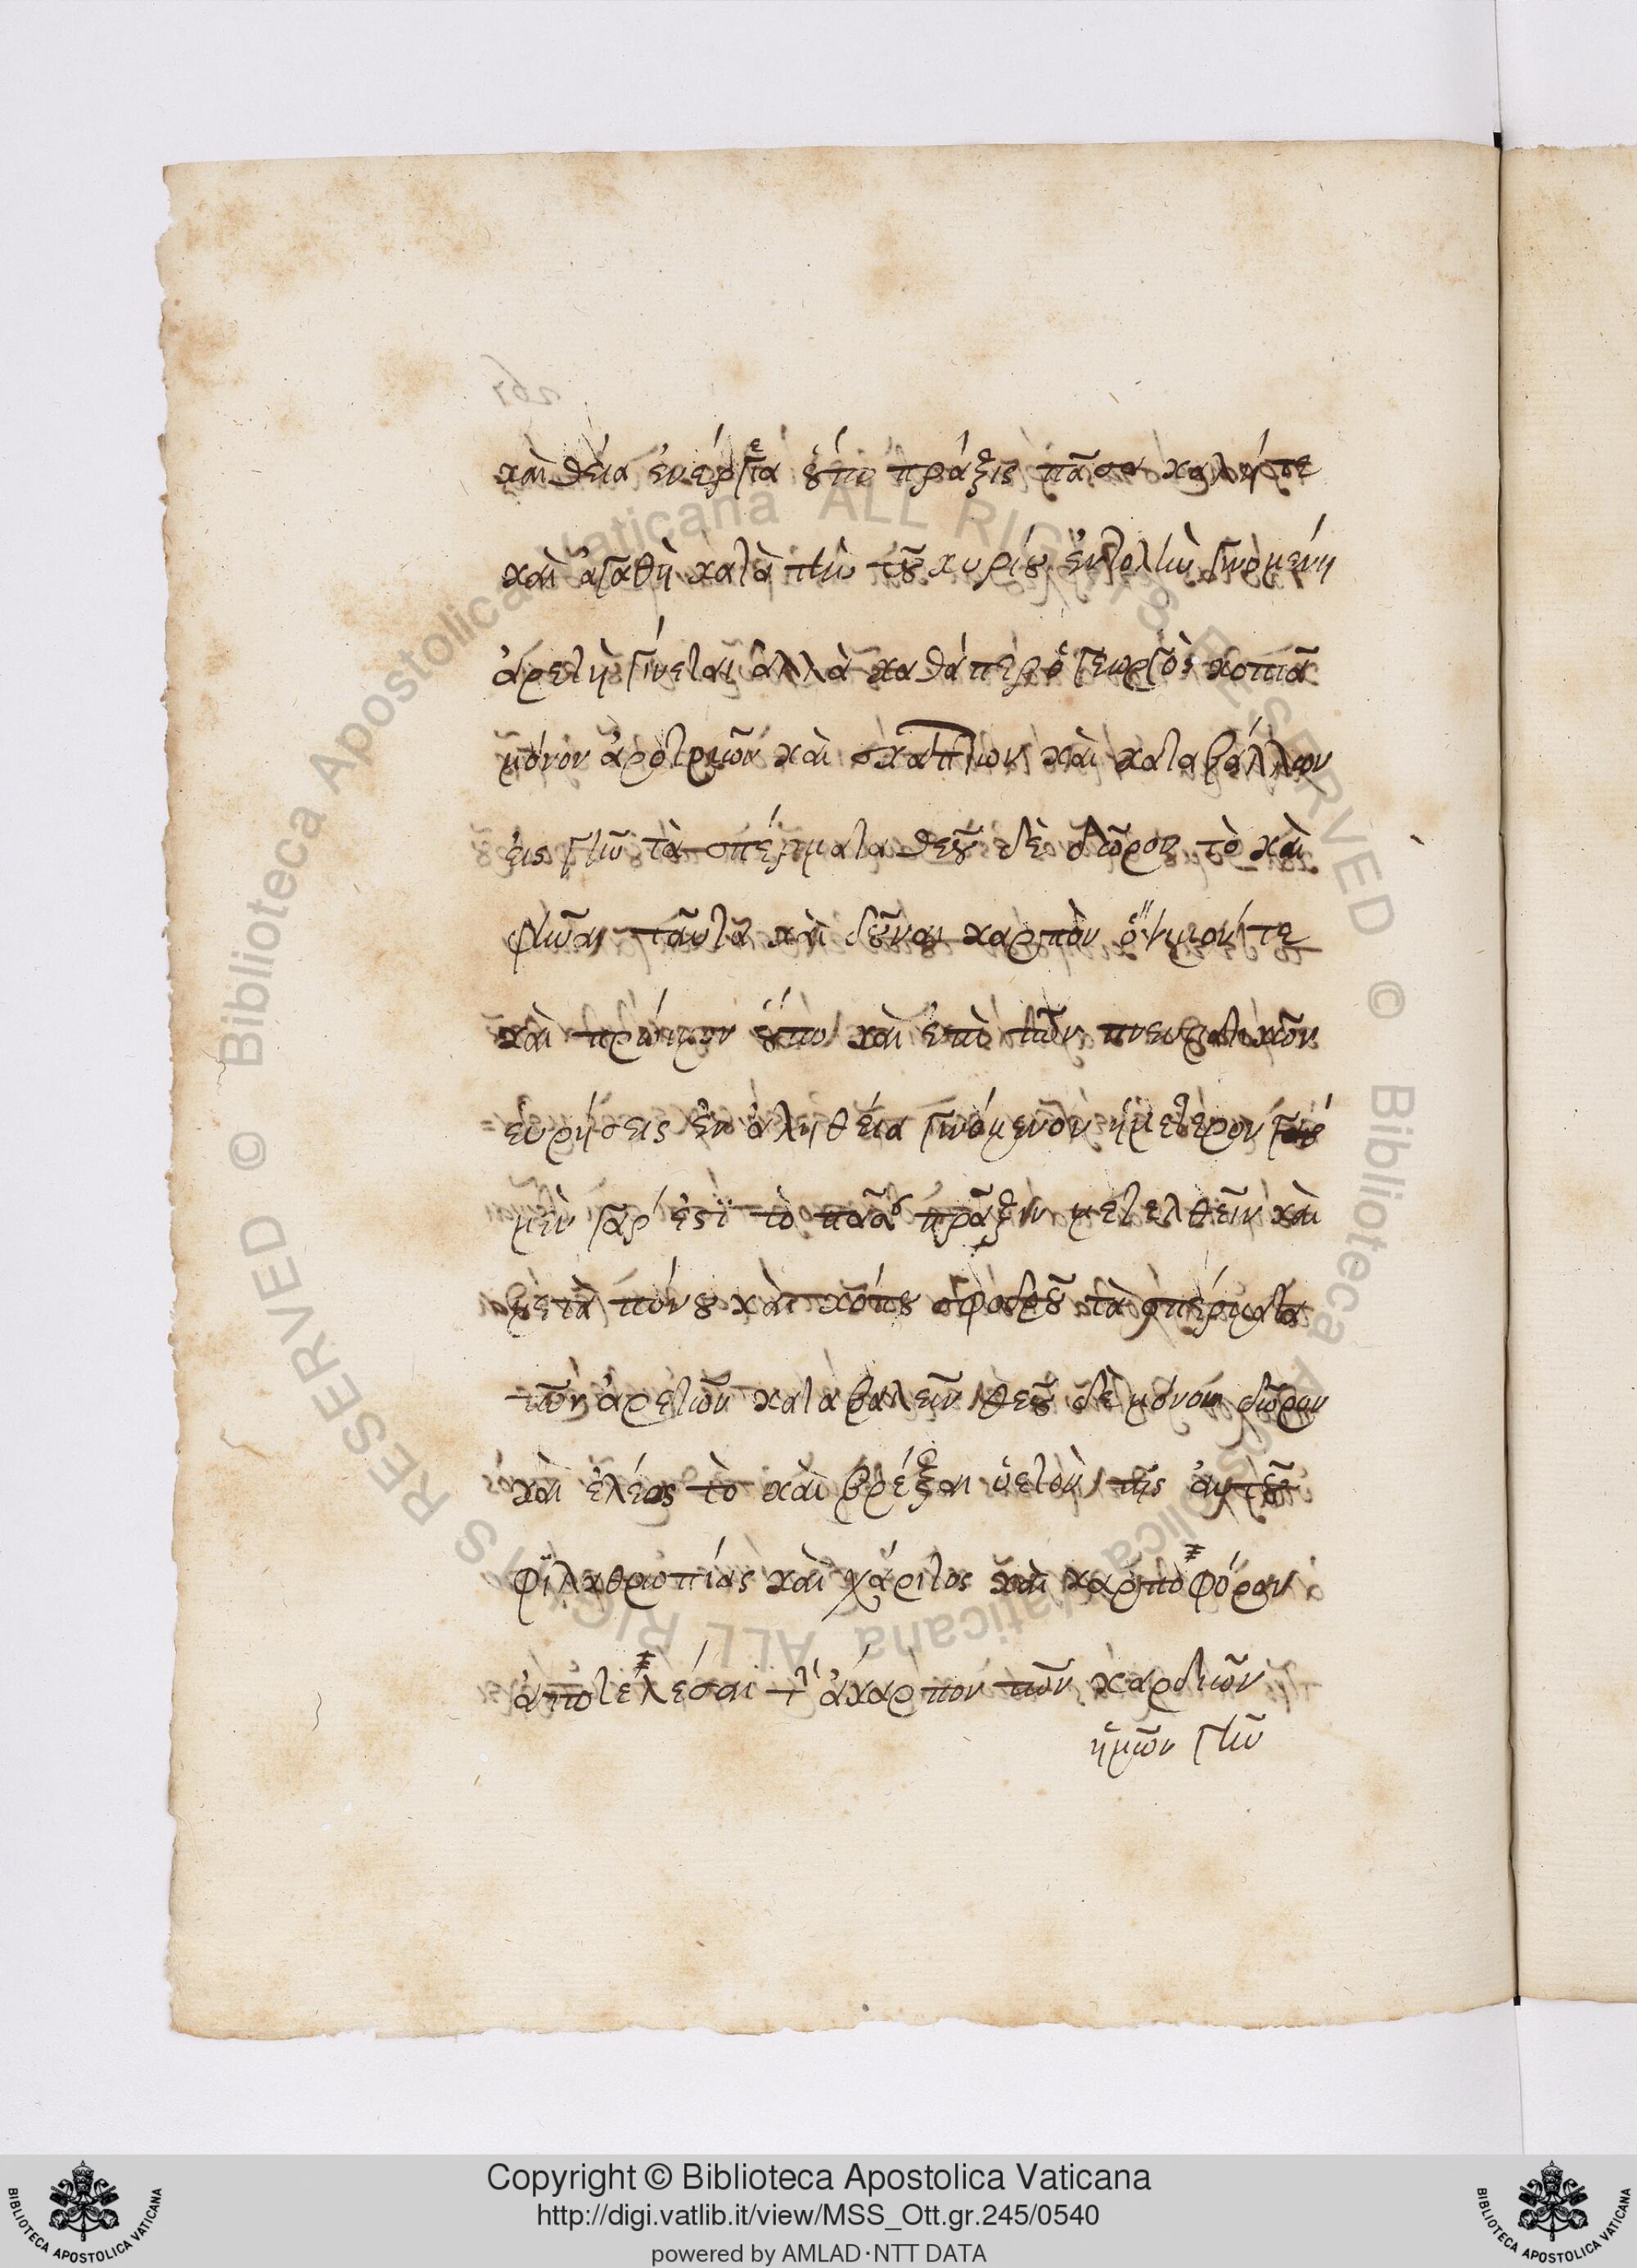 καὶ θεία ἐνέργεια οὕτω πράξις πᾶσα καλήτε
καὶ ἀγαθὴ κατὰ τὴν τοῦ κυρίου ἐντολὴν γινομένη
ἀρετὴ γίνεται ἀλλὰ καθάπερ ὁ γεωργὸς κοπιᾶ
μόνον ἀροτριῶν καὶ σκάπτων καὶ καταβάλλων
εἰς γῆν τὰ σπέρματα θεοῦ δὲ δῶρον τὸ καὶ
φυῶαι ταῦτα καὶ δοῦναι καρπὸν ὄψιμον τε
καὶ πρώιμον οὕτω καὶ ἐπὶ τῶν πνευματικῶν
εὑρήσεις ἐν ἀληθεία γινόμενον ἡμέτερον
μὲν γάρ ἐστὶ τὸ πᾶσαν πρᾶξιν μετελθεῖν καὶ
μετὰ πόνου καὶ κόπου σφοδροῦ τὰ σπέρματα
τῶν ἀρετῶν καταβαλεῖν θεοῦ δὲ μόνου δῶρον
καὶ ἐλέος τὸ καὶ βρέξαι ὑετὸν τῆς αὐτοῦ
φιλαθρωπίας καὶ χάριτος καὶ καρποφόρον
ἀποτελέσαι τὴν ἄκαρπον τῶν καρδιῶν
ἡμῶν γῆν
© Biblioteca Apostolica Vaticana ALL RIGHTS RESERVED © Biblioteca Apostolica Vaticana ALL RIGHTS RESERVED
Copyright © Biblioteca Apostolica Vaticana
http://digi.vatlib.it/view/MSS_Ott.gr.245/0540
powered by AMLAD·NTT DATA
BIBLIOTECA APOSTOLICA VATICANA
BIBLIOTECA APOSTOLICA VATICANA